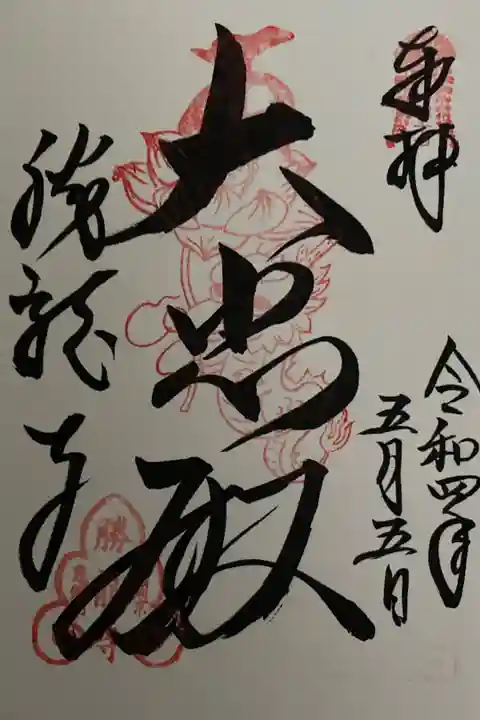 奉拝
令和四年
五月五日
大悲殿
勝龍寺